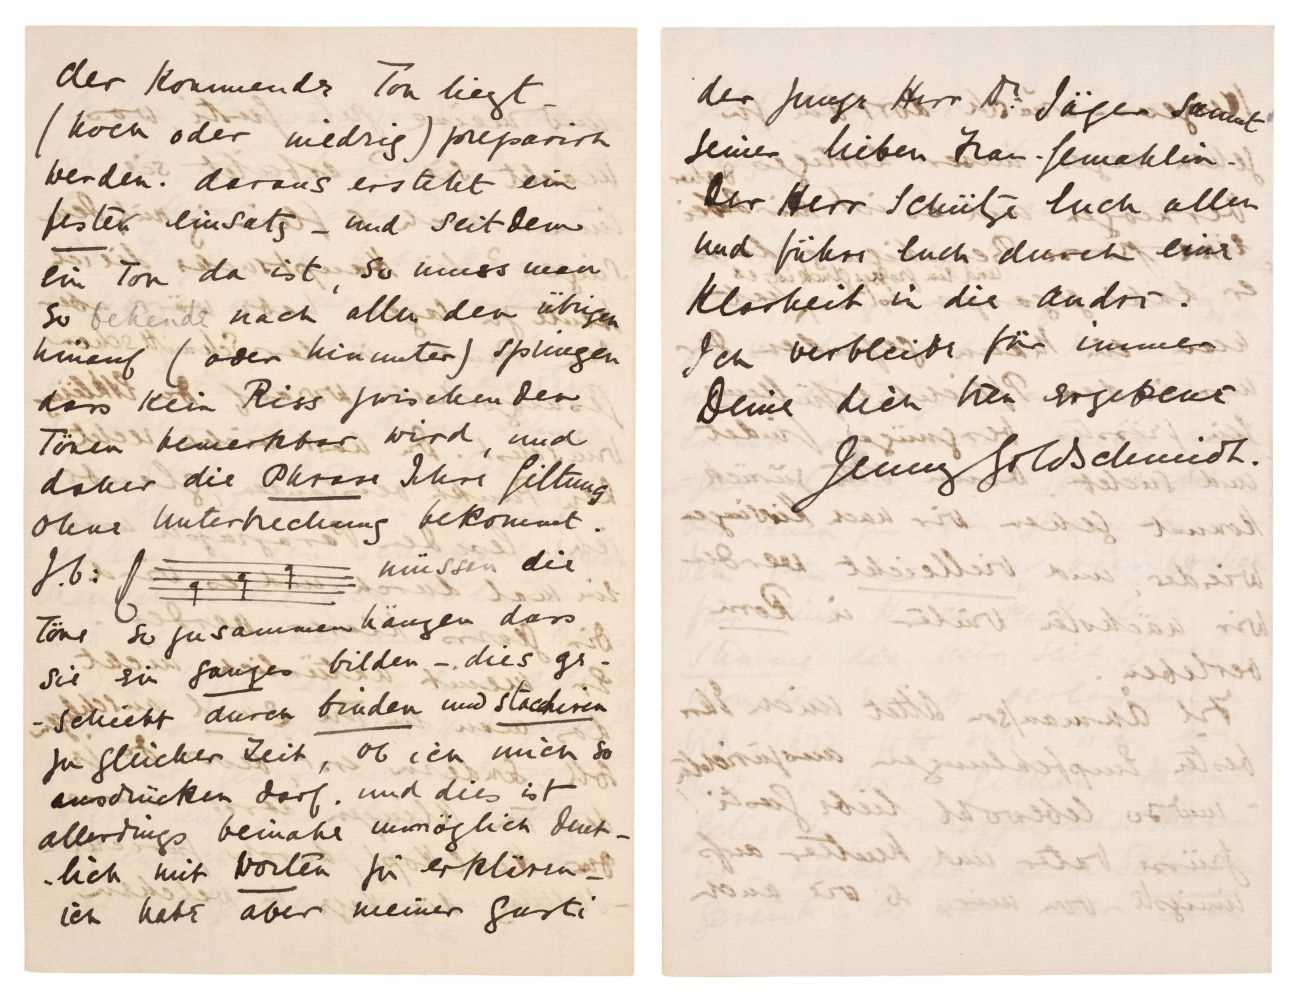 der kommende Ton liegt –
(hoch oder niedrig) preparirt
werden. daraus ersteht ein
festen Einsatz – und seitdem
ein Ton da ist, so muss man
so behende nach allen den übrigen
hinauf (oder hinunter) springen
dass kein Riss zwischen den
Tönen bemerkbar wird, und
daher die Phrase Ihre Giltung
ohne Unterbrechung bekommt.
Z.b: müssen die
Töne so zusammenhängen dass
sie ein ganzes bilden – dies ge-
-schieht durch binden und stachiren
zu gleicher Zeit, ob ich mich so
ausdrücken darf. und dies ist
allerdings beinahe unmöglich deut-
-lich mit Worten zu erklären –
ich habe aber meiner Gusti
der junge Herr Dr. Jäger sammt
seiner lieben Frau-Gemahlin.
Der Herr Schütze Euch allen
und führe Euch durch eine
Klarheit in die andre.
Ich verbleibe für immer
Deine dich treu ergebene
Jenny Goldschmidt.